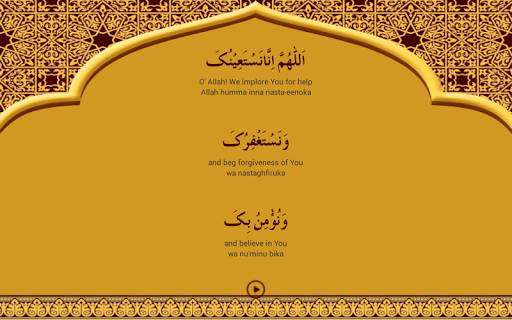 اَللّٰهُمَّ اِنَّا نَسْتَعِيْنُكَ
O' Allah! We implore You for help
Allah humma inna nasta-eenoka
وَنَسْتَغْفِرُكَ
and beg forgiveness of You
wa nastaghfiruka
وَنُؤْمِنُ بِكَ
and believe in You
wa nu'minu bika